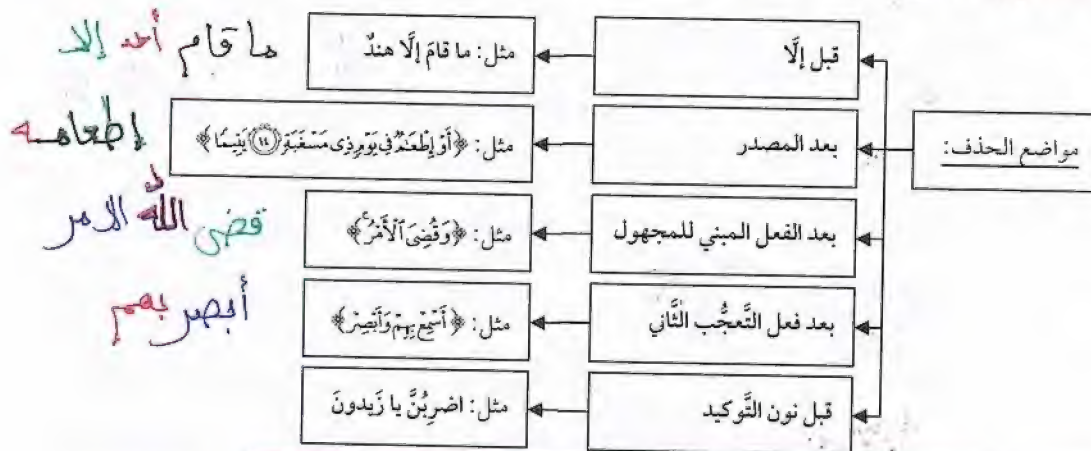 مواضع الحذف:
قبل إلَّا
مثل: ما قامَ إلَّا هندٌ
ما قام أحد إلا
بعد المصدر
مثل: ﴿أَوۡ إِطۡعَٰمٞ فِي يَوۡمٖ ذِي مَسۡغَبَةٖ ١٤ يَتِيمٗا﴾
إطعامه
بعد الفعل المبني للمجهول
مثل: ﴿وَقُضِيَ ٱلۡأَمۡرُۚ﴾
قضى اللهُ الامر
بعد فعل التَّعجُّب الثَّاني
مثل: ﴿أَسۡمِعۡ بِهِمۡ وَأَبۡصِرۡ﴾
أبصر بهم
قبل نون التَّوكيد
مثل: اضرِبُنَّ يا زَيدونَ